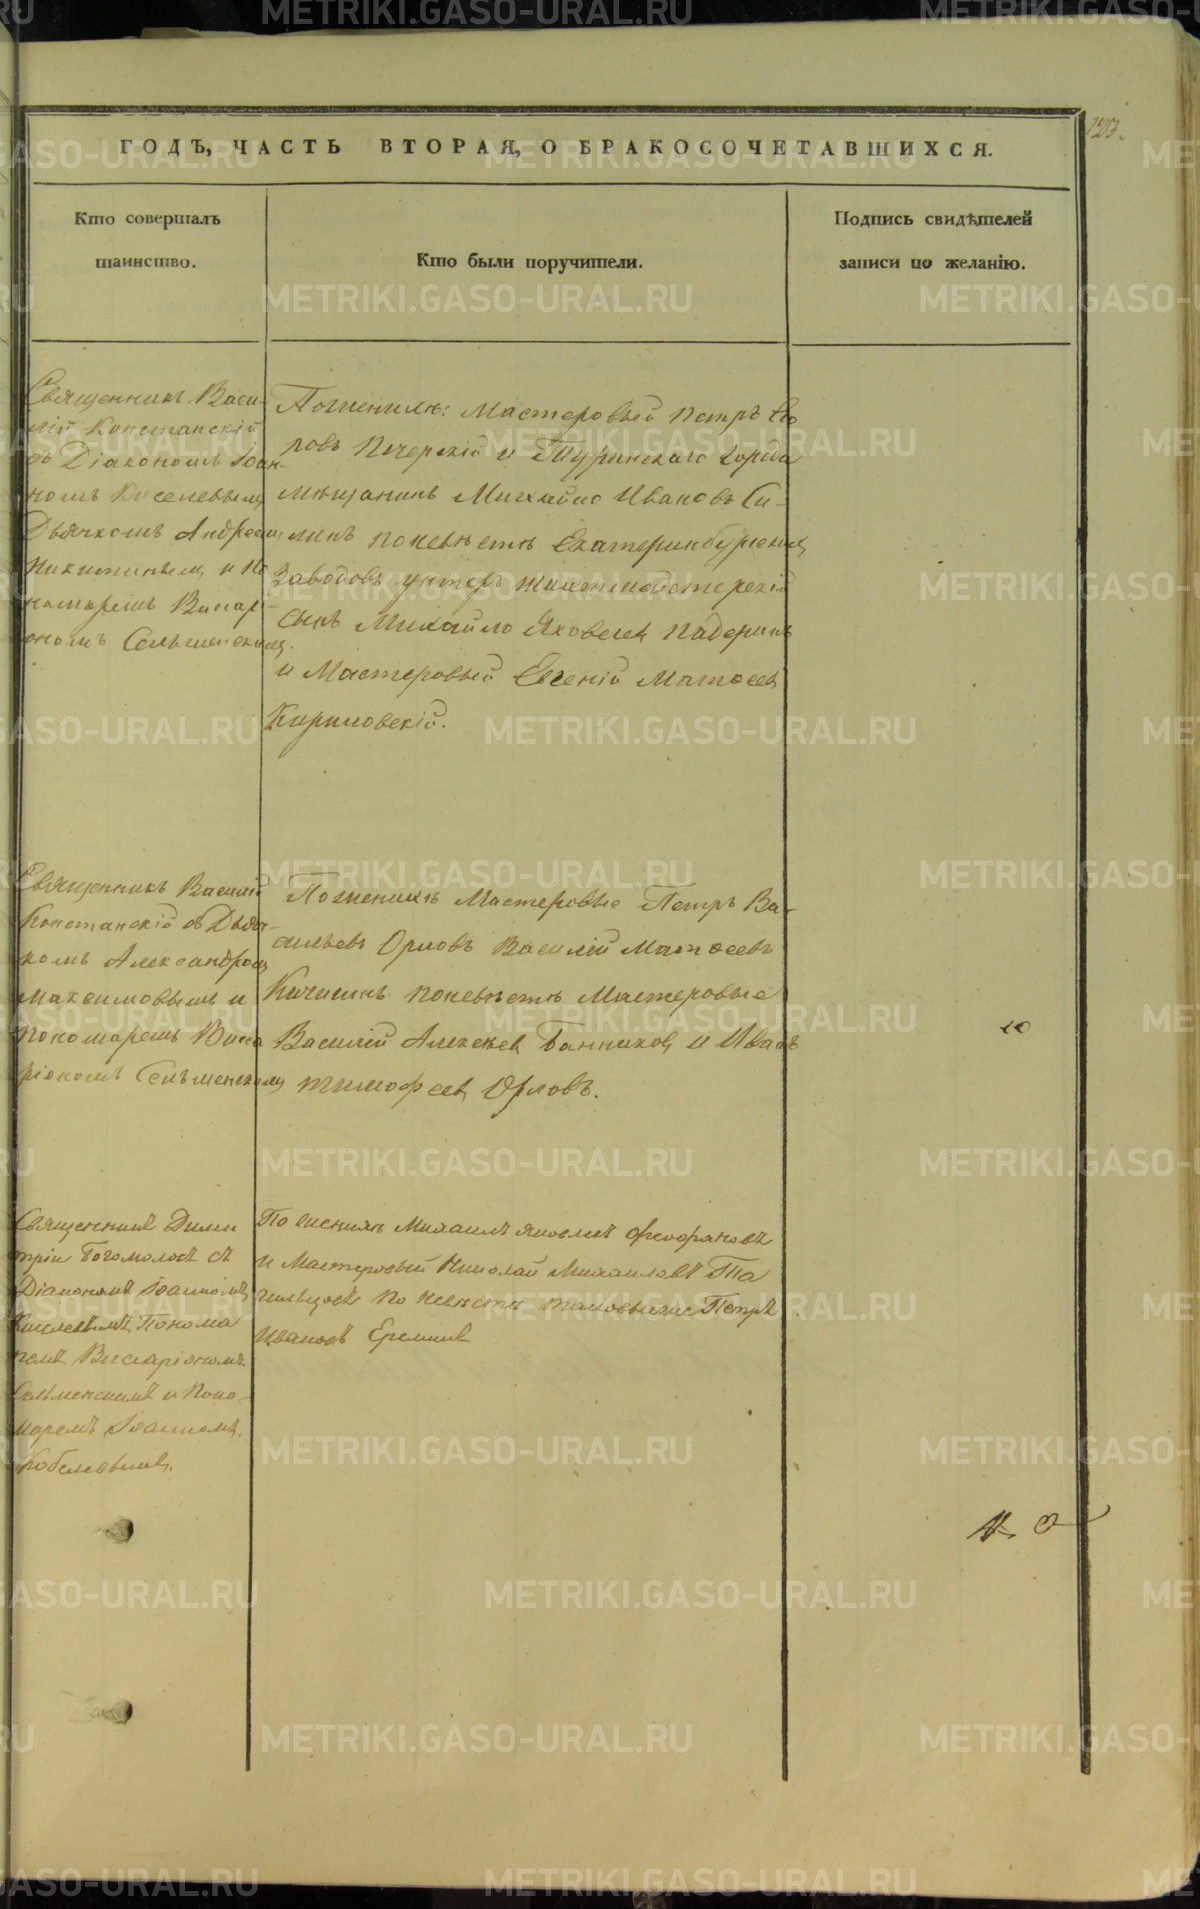 123.
ГОДЪ, ЧАСТЬ ВТОРАЯ, О БРАКОСОЧЕТАВШИХСЯ.
Кто совершалъ
таинство.
Кто были поручители.
Подпись свидѣтелей
записи по желанію.
Священникъ Васи-
лій Констанскій
съ Діакономъ Іоан-
номъ Киселевымъ
Дьячкомъ Андреемъ
Никитинымъ и По
номаремъ Висар-
іономъ Сельменскимъ.
По женихѣ: Мастеровый Петръ Его
ровъ Печерскій и Туринскаго города
мѣщанинъ Михайло Ивановъ Си-
линъ по невѣстѣ Екатеринбургскихъ
Заводовъ унтеръ шихтмейстерскій
сынъ Михайло Яковлевъ Падеринъ
и Мастеровый Евгеній Матвеевъ
Кириловскій.
Священникъ Василій
Констанскій съ Дьяч-
комъ Александромъ
Максимовымъ и
пономаремъ Висса
ріономъ Сельменскимъ
По женихѣ Мастеровые Петръ Ва-
сильевъ Орловъ Василій Матвеевъ
Кичигинъ по невѣстѣ Мастеровые
Василій Алексѣевъ Банниковъ и Иванъ
Тимофеевъ Орловъ.
Священникъ Дими
трій Богомоловъ съ
Діакономъ Іоанномъ
Киселевымъ, Понома
ремъ Висаріономъ
Сельменскимъ и Поно-
маремъ Іоанномъ
Кобелевымъ.
По женихѣ Михаилъ Яковлевъ Феофановъ
и Мастеровый Николай Михаиловъ Та
гильцовъ по невѣстѣ таковыеже Петръ
Ивановъ Ереминъ
METRIKI.GASO-URAL.RU